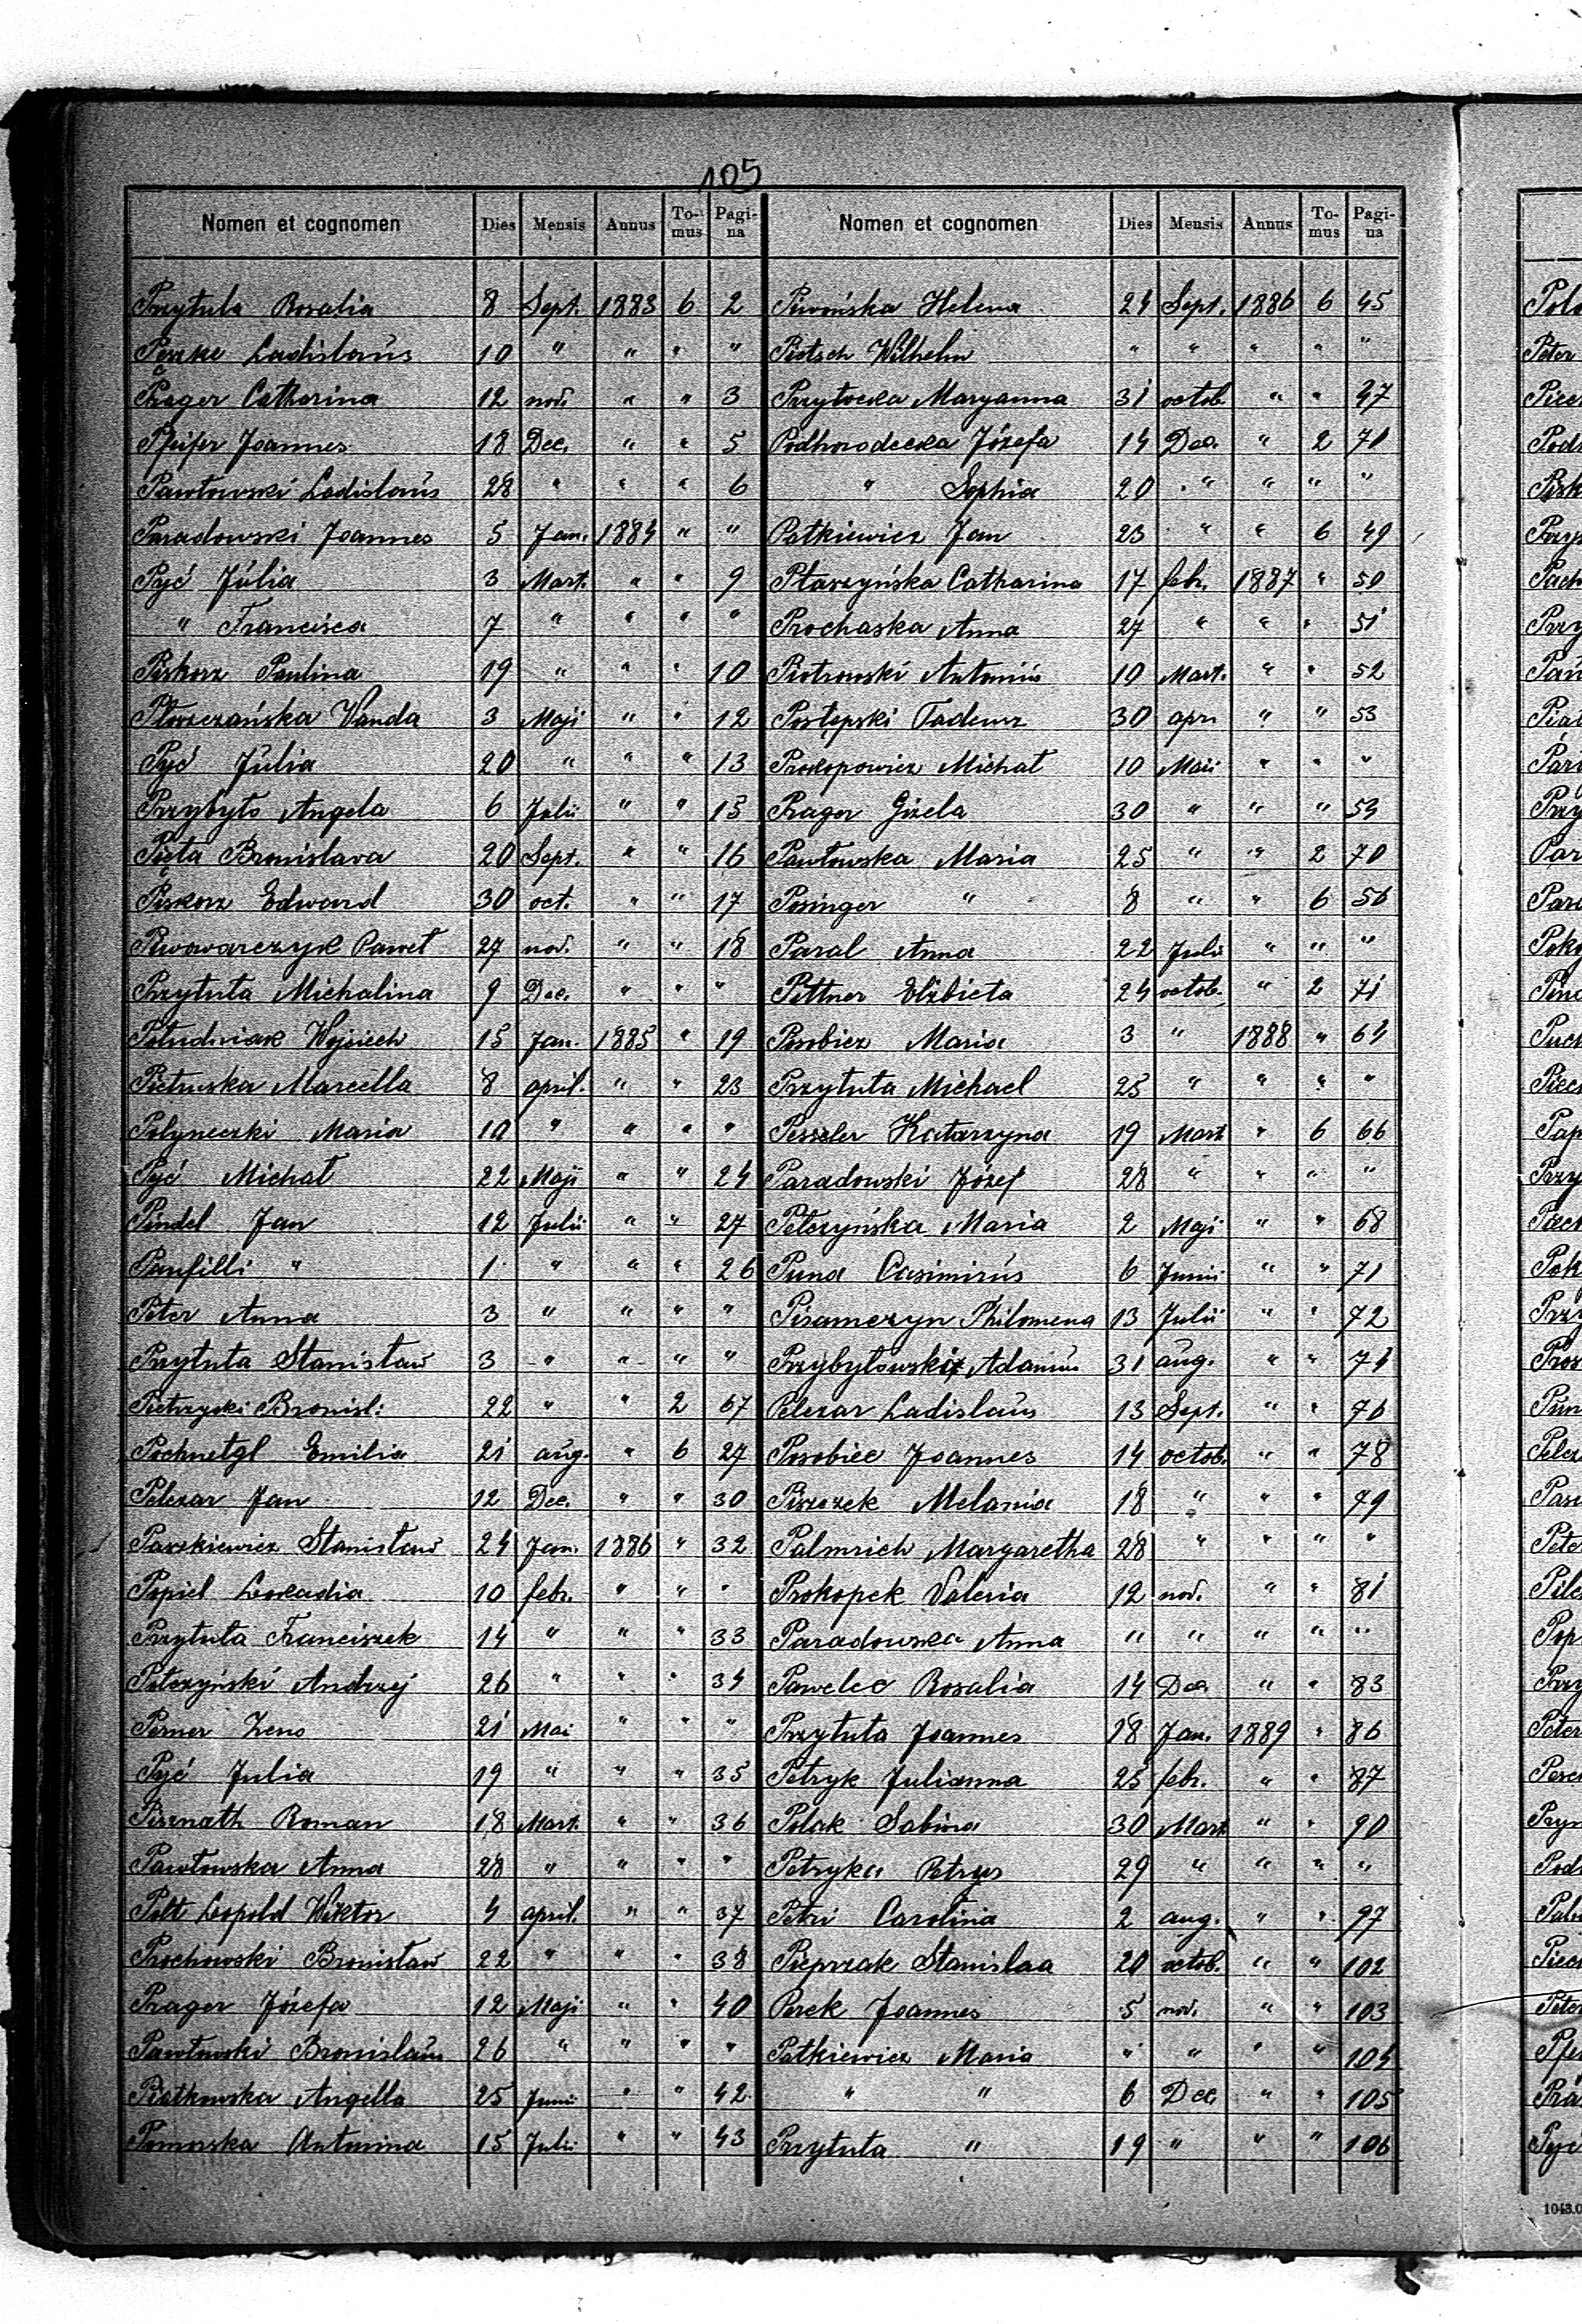 105
Nomen et cognomen Dies Mensis Annus To-mus Pagi-na
Przytuła Rosalia 8 Sept. 1883 6 2
Peszke Ladislaus 10 " " " "
Prager Catharina 12 nov. " " 3
Pfeifer Joannes 18 Dec. " " 5
Pawłowski Ladislaus 28 " " " 6
Paradowski Joannes 5 Jan. 1884 " "
Pyć Julia 3 Mart. " " 9
" Francisca 7 " " " "
Piskorz Paulina 19 " " " 10
Płoszczańska Vanda 3 Maji " " 12
Pyć Julia 20 " " " 13
Przybyło Angela 6 Julii " " 15
Pięta Bronislava 20 Sept. " " 16
Piskorz Edward 30 oct. " " 17
Piwowarczyk Paweł 27 nov. " " 18
Przytuła Michalina 9 Dec. " " "
Południak Wojciech 15 Jan. 1885 " 19
Pietruska Marcella 8 april. " " 23
Polyneczki Maria 10 " " " "
Pyć Michał 22 Maji " " 24
Pindel Jan 12 Julii " " 27
Panfilli " 1 " " " 26
Peter Anna 3 " " " "
Przytuła Stanisław 3 " " " "
Pietrzycki Bronisl: 22 " " 2 67
Pochnetgl Emilia 21 aug. " 6 27
Pelczar Jan 12 Dec. " " 30
Paszkiewicz Stanisław 24 Jan. 1886 " 32
Popiel Leokadia 10 febr. " " "
Przytuła Franciszek 14 " " " 33
Pełczyński Andrzej 26 " " " 34
Perner Zeno 21 Mai " " "
Pyć Julia 19 " " " 35
Pisznath Roman 18 Mart. " " 36
Pawłowska Anna 28 " " " "
Polt Leopold Wiktor 4 april. " " 37
Prochowski Bronisław 22 " " " 38
Prager Józefa 12 Maji " " 40
Pawłowski Bronislaus 26 " " " "
Piotkowska Angella 25 Junii " " 42
Pomorska Antonina 15 Julii " " 43
Nomen et cognomen Dies Mensis Annus To-mus Pagi-na
Piwońska Helena 24 Sept. 1886 6 45
Piotsch Wilhelm " " " " "
Przytocka Maryanna 31 octob. " " 47
Podhorodecka Józefa 14 Dec. " 2 71
" Sophia 20 " " " "
Patkiewicz Jan 23 " " 6 49
Ptaszyńska Catharina 17 febr. 1887 " 50
Prochaska Anna 27 " " " 51
Piotrowski Antonius 10 Mart. " " 52
Postępski Tadeusz 30 apr. " " 53
Prokopowicz Michał 10 Maii " " "
Prager Gizela 30 " " " 54
Pawłowska Maria 25 " " 2 70
Posinger " 8 " " 6 56
Paral Anna 22 Julii " " "
Pittner Elżbieta 24 octob. " 2 71
Posobiez Maria 3 " 1888 " 64
Przytuła Michael 25 " " " "
Pesszler Katarzyna 19 Mart " 6 66
Paradowski Józef 28 " " " "
Pełczyńska Maria 2 Maji " " 68
Puna Casimirus 6 Junii " " 71
Pisamczyn Philomena 13 Julii " " 72
Przybyłowski Adamus 31 aug. " " 74
Pelczar Ladislaus 13 Sept. " " 76
Posobiec Joannes 14 octob. " " 78
Piszczek Melania 18 " " " 79
Palmrich Margaretha 28 " " " "
Prokopek Valeria 12 nov. " " 81
Paradowska Anna " " " " "
Pawelec Rosalia 14 Dec. " " 83
Przytuła Joannes 18 Jan. 1889 " 86
Petryk Julianna 25 febr. " " 87
Polak Sabina 30 Mart. " " 90
Petryka Petrus 29 " " " "
Petri Carolina 2 aug. " " 97
Pieprzak Stanislaa 20 octob. " " 102
Perek Joannes 5 nov. " " 103
Patkiewicz Maria " " " " 104
" " 6 Dec. " " 105
Przytuła " 19 " " " 106